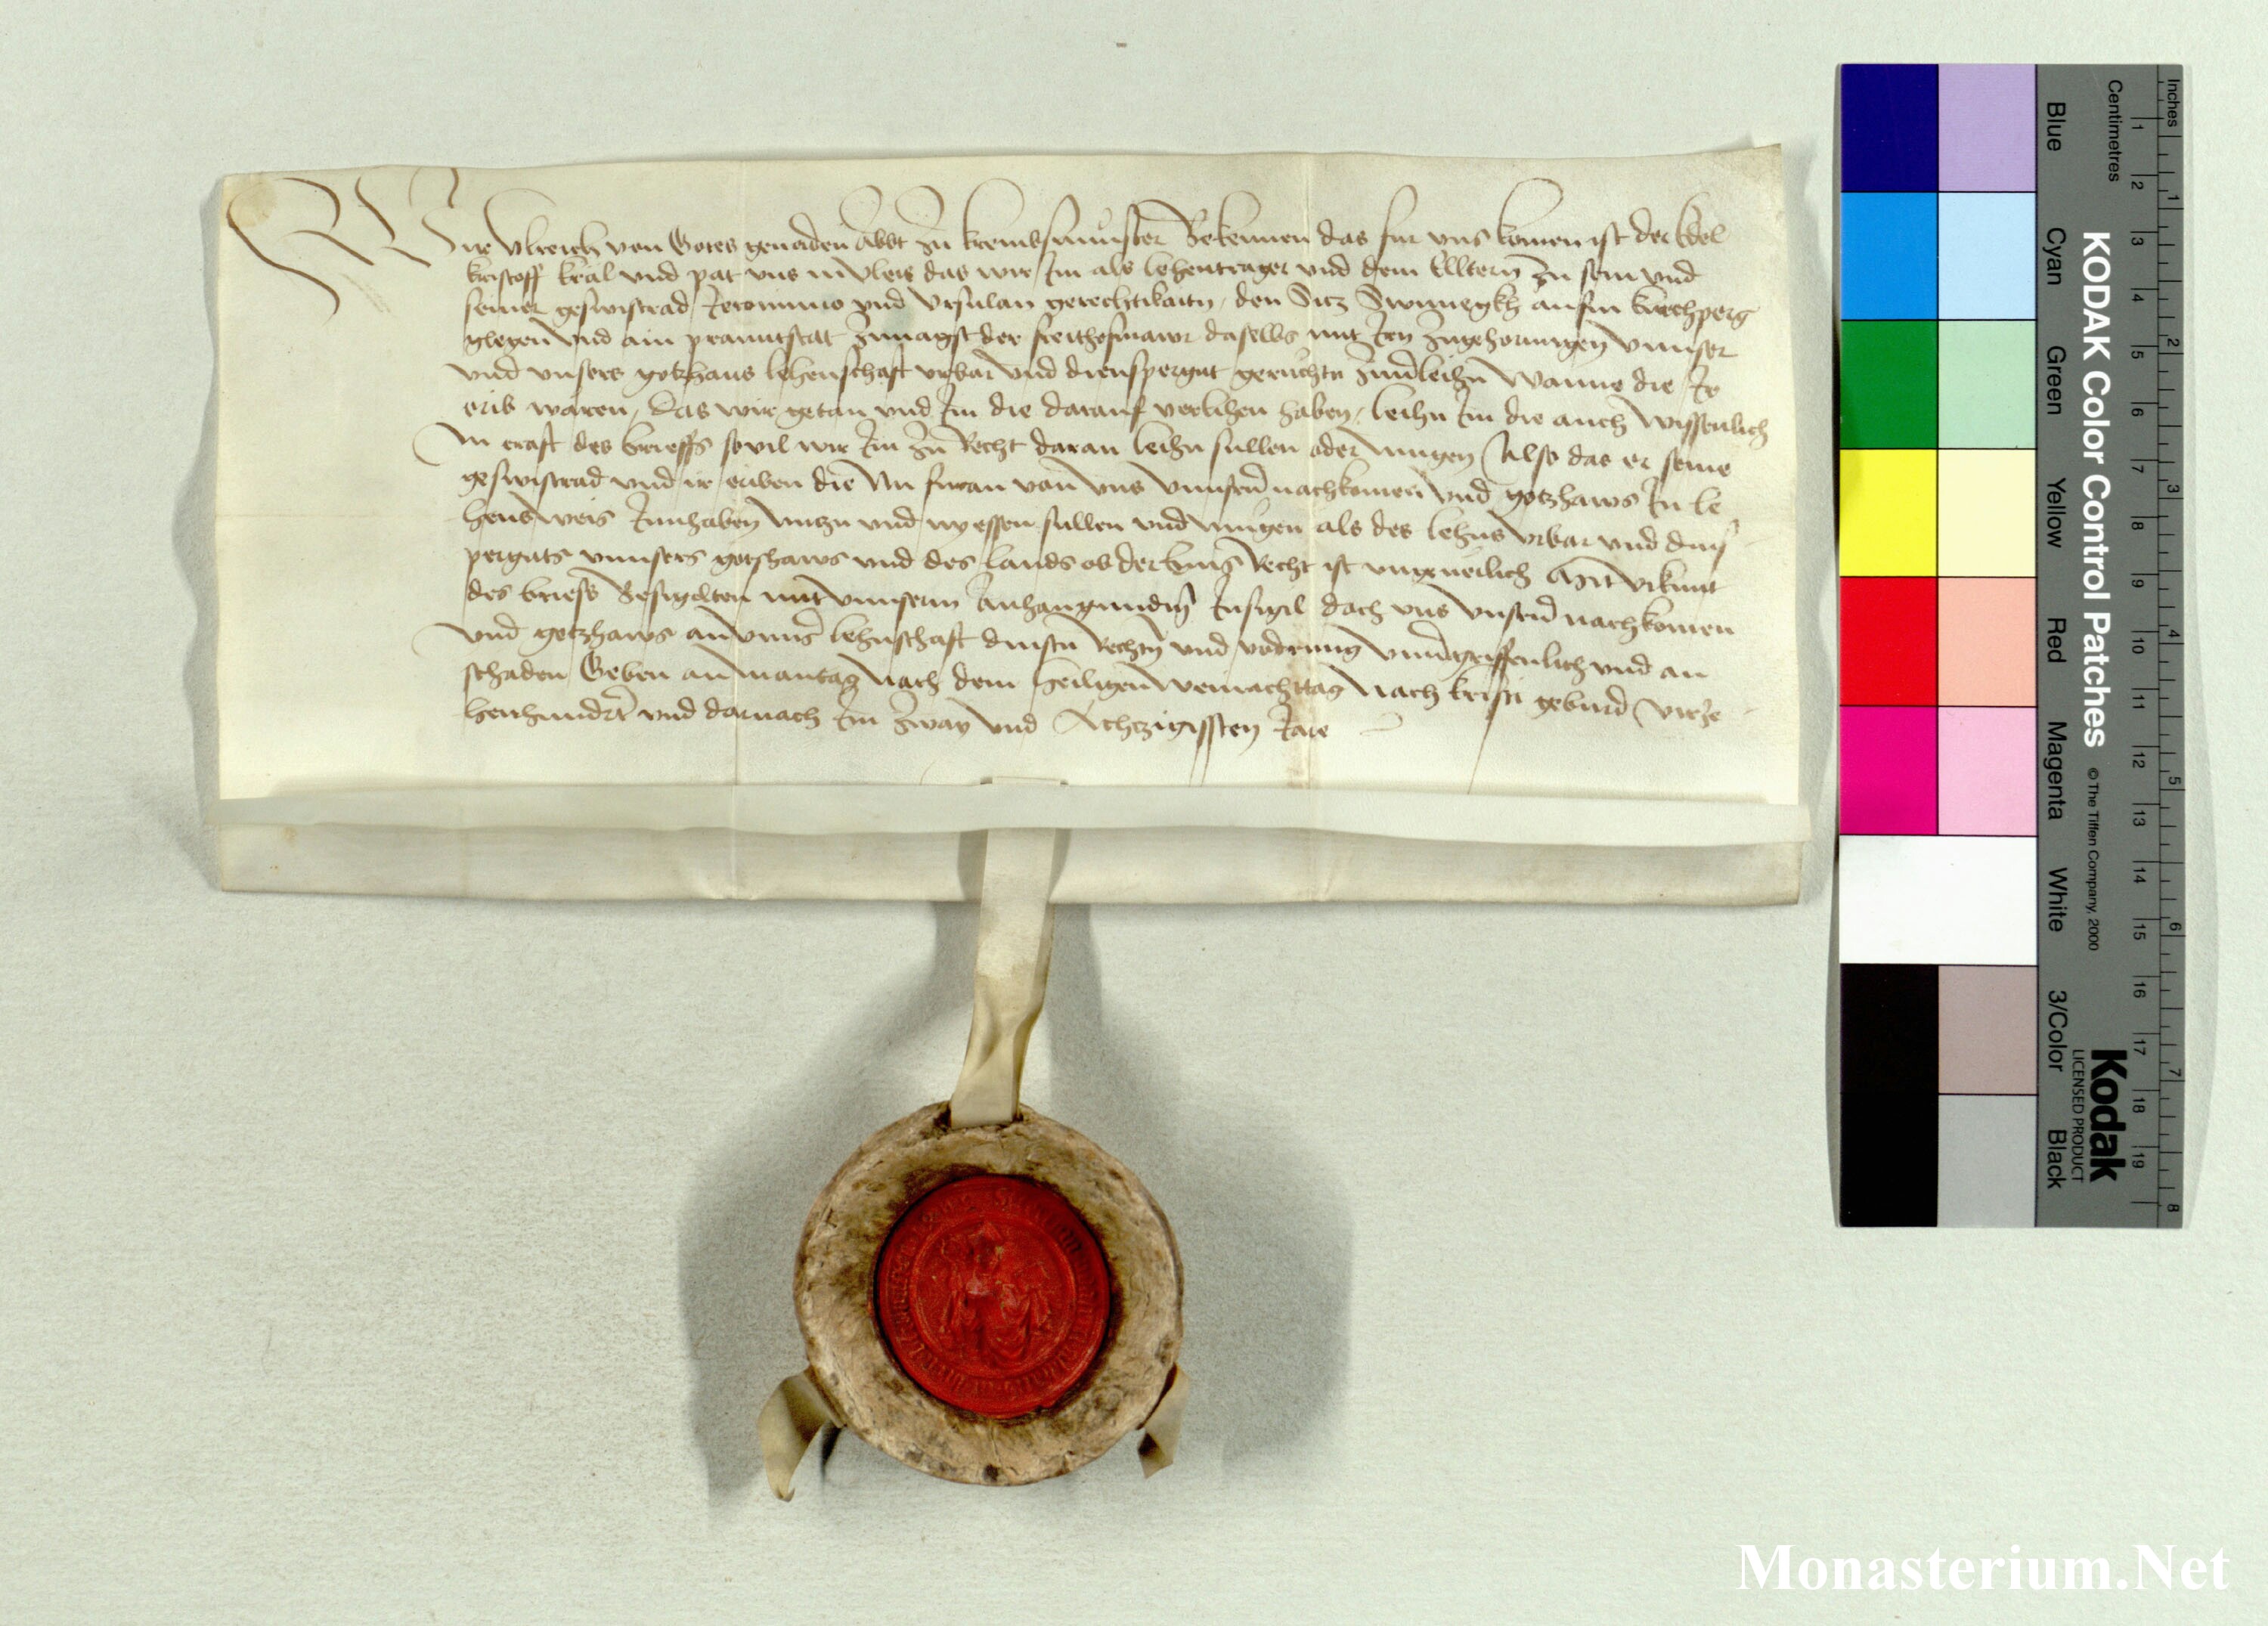 Wir Ulreich von Gotes genaden Abbt zu krembsmunster Bekennen das fur uns komen ist der Edel
kristoff kral und pat uns in vleis das wir Im als lehentrager und dem Elltern zu sein und
seiner geswistrad Jeronimo und Ursulan gerechtikaitn, den Sitz Swinnegkh auf kirchperg
glegen und ain prauntstat zunagst der freithofmawr daselbs mit Irn zugehorungen unnser
und unsers gotzhaus lehenschaft urbar und dienspergut geruchtn zuverleihn Wanne die Ir
erib waren, Das wir getan und Im die darauf verlihen haben, leihn Im die auch wissenlich
In craft des brieffs sovil wir Im zu Recht daran leihn sullen oder mugen Also das er seine
geswistrad und ir eriben die Nu furan von uns unnsern nachkomen und gotzhaws In le
hens weis Innhaben nutzn und nyessen sullen und mugen als des lehns urbar und dins
perguts unnsers gotshaws und des lands ob der Enns Recht ist ungeverlich Mit urkunt
des briefs Besigelten mit unnserm Anhangundem Insigil doch uns unsern nachkomen
und gotzhaws an unns lehnschaft dinstn Rechtn und vodrung unvergriffenlich und an
schaden Geben an Mantag Nach dem heiligen weinachttag Nach kristi geburd vierze
henhundert und darnach Im zway und Achtzigissten Jare
KODAK Color Control Patches
© The Tiffen Company, 2000
Kodak
LICENSED PRODUCT
Blue Cyan Green Yellow Red Magenta White 3/Color Black
Centimetres 1 2 3 4 5 6 7 8 9 10 11 12 13 14 15 16 17 18 19
Inches 1 2 3 4 5 6 7 8
Monasterium.Net